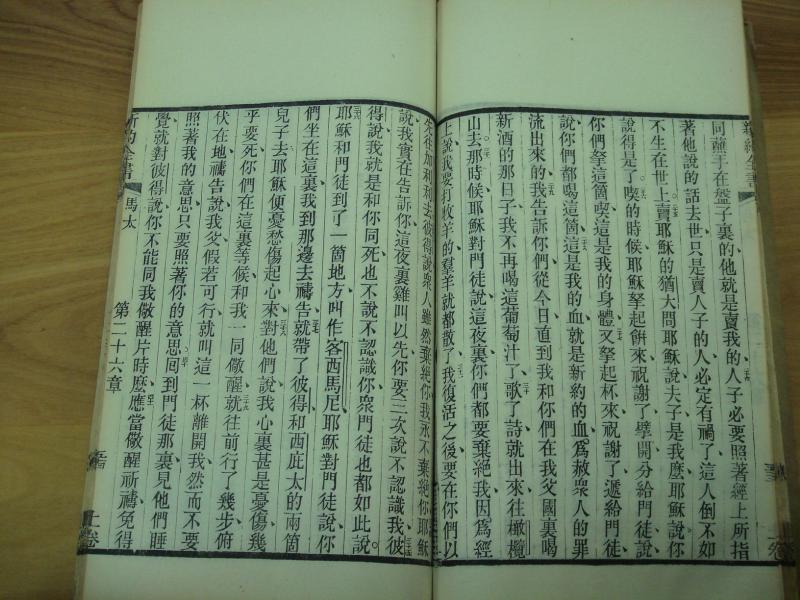 同蘸手在盤子裏的他就是賣我的人子必要照著經上所指
著他說的話去世只是賣人子的人必定有禍了這人倒不如
不生在世上賣耶穌的猶大問耶穌說夫子是我麼耶穌說你
說得是了喫的時候耶穌拏起餅來祝謝了擘開分給門徒說
你們拏這箇喫這是我的身體又拏起杯來祝謝了遞給門徒
說你們都喝這箇這是我的血就是新約的血為赦衆人的罪
流出來的我告訴你們從今日直到我和你們在我父國裏喝
新酒的那日子我不再喝這葡萄汁了歌了詩就出來往橄欖
山去那時候耶穌對門徒說這夜裏你們都要棄絕我因為經
上說我要打牧羊的羣羊就都散了我復活之後要在你們以
先往加利利去彼得說衆人雖然棄絕你我永不棄絕你耶穌
說我實在告訴你這夜裏雞叫以先你要三次說不認識我彼
得說我就是和你同死也不說不認識你衆門徒也都如此說
耶穌和門徒到了一箇地方叫作客西馬尼耶穌對門徒說你
們坐在這裏我到那邊去禱告就帶了彼得和西庇太的兩箇
兒子去耶穌便憂愁傷起心來對他們說我心裏甚是憂傷幾
乎要死你們在這裏等候和我一同儆醒就往前行了幾步俯
伏在地禱告說我父假若可行就叫這一杯離開我然而不要
照著我的意思只要照著你的意思回到門徒那裏見他們睡
覺就對彼得說你不能同我儆醒片時麼應當儆醒祈禱免得
新約全書 馬太 第二十六章 上卷